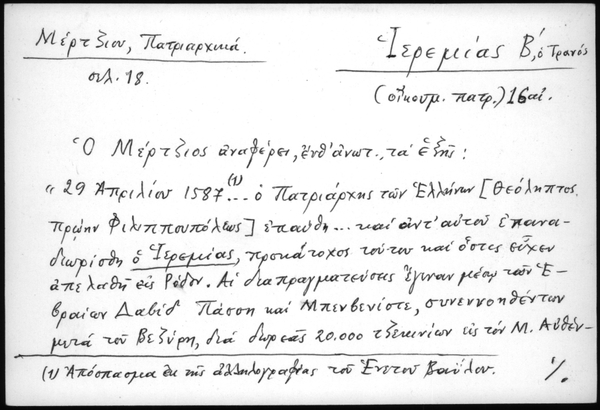 Μέρτζιου, Πατριαρχικά.
σελ. 18.
Ἱερεμίας Β΄, ὁ Τρανός
(οἰκουμ. πατρ.) 16 αἰ.
Ὁ Μέρτζιος ἀναφέρει, ἔνθ' ἀνωτ., τά ἑξῆς:
"29 Ἀπριλίου 1587 (1)... ὁ Πατριάρχης τῶν Ἑλλήνων [Θεόληπτος
πρώην Φιλιππουπόλεως] ἐπαύθη... καί ἀντ' αὐτοῦ ἐπανα-
διωρίσθη ὁ Ἱερεμίας, προκάτοχος τούτου καί ὅστις εἶχεν
ἀπελαθῆ εἰς Ρόδον. Αἱ διαπραγματεύσεις ἔγιναν μέσῳ τῶν Ἑ-
βραίων Δαβίδ Πάσση καί Μπενβενίστε, συνεννοηθέντων
μετά τοῦ Βεζύρη, διά δωρεᾶς 20.000 τζεκινίων εἰς τόν Μ. Αὐθέν-
(1) Ἀπόσπασμα ἐκ τῆς ἀλληλογραφίας τοῦ Ἑνετοῦ Βαΐλου.
·/.